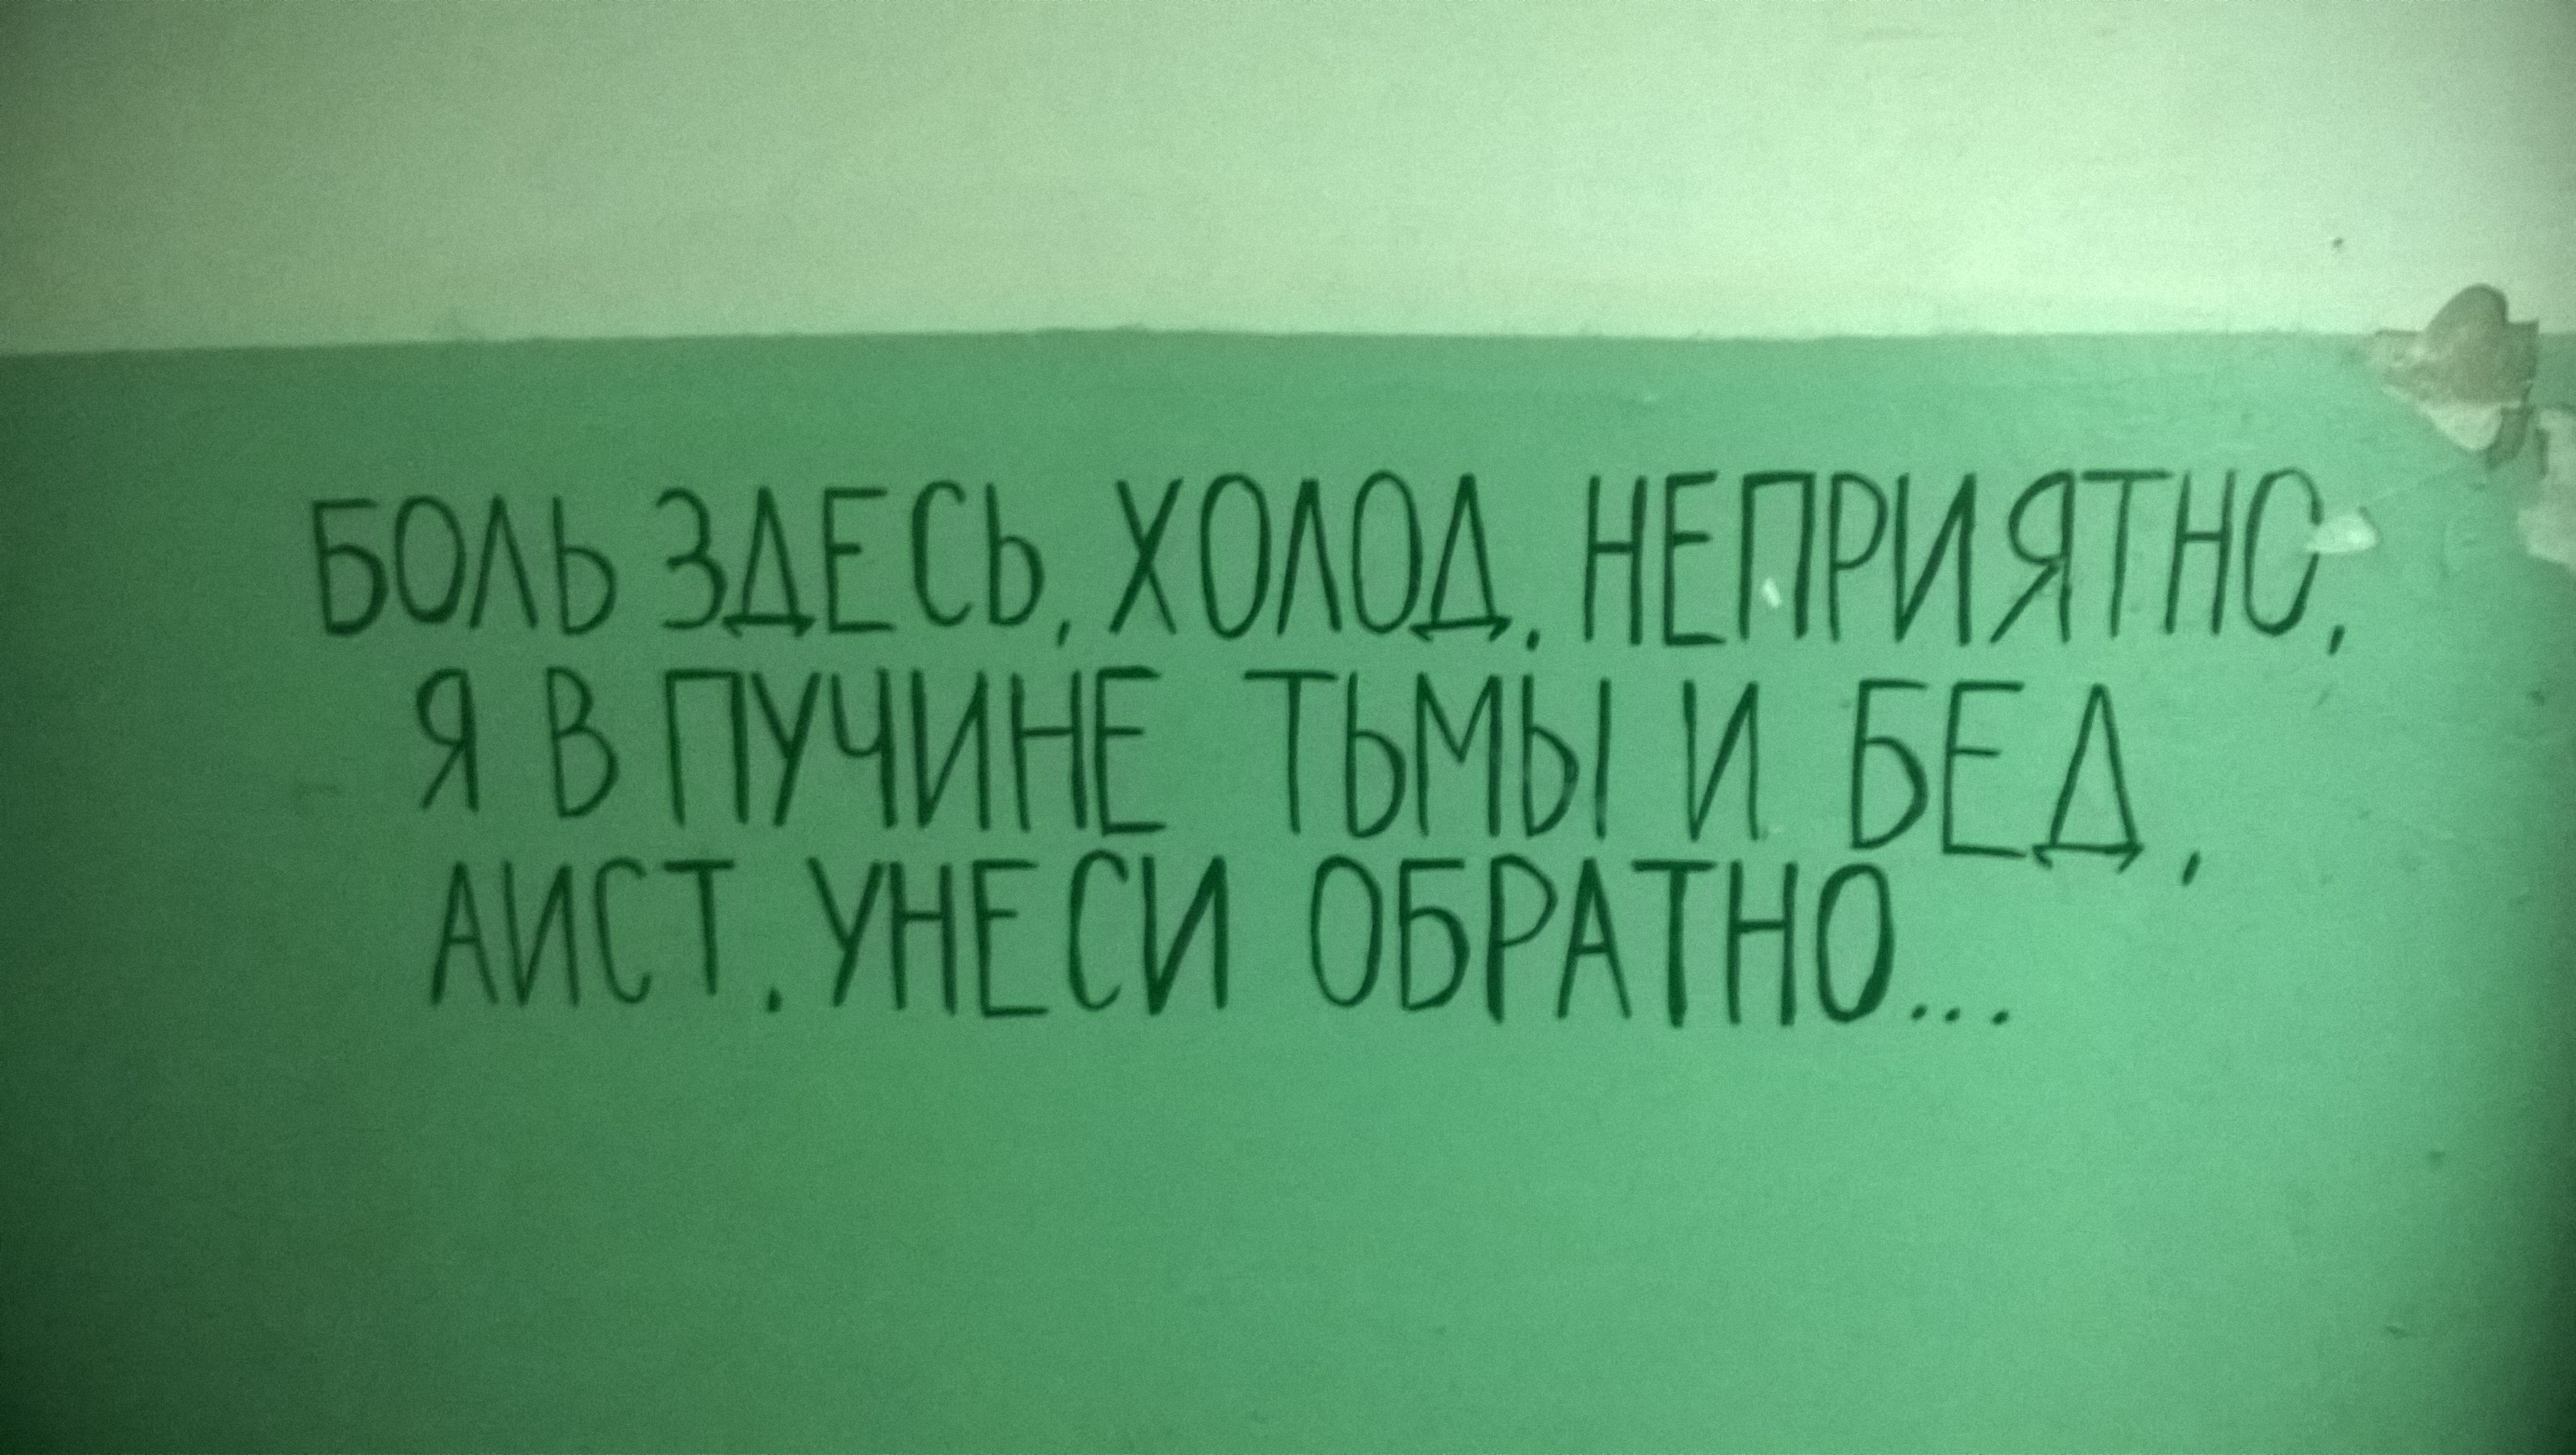 БОЛЬ ЗДЕСЬ, ХОЛОД. НЕПРИЯТНО,
Я В ПУЧИНЕ ТЬМЫ И БЕД,
АИСТ. УНЕСИ ОБРАТНО...